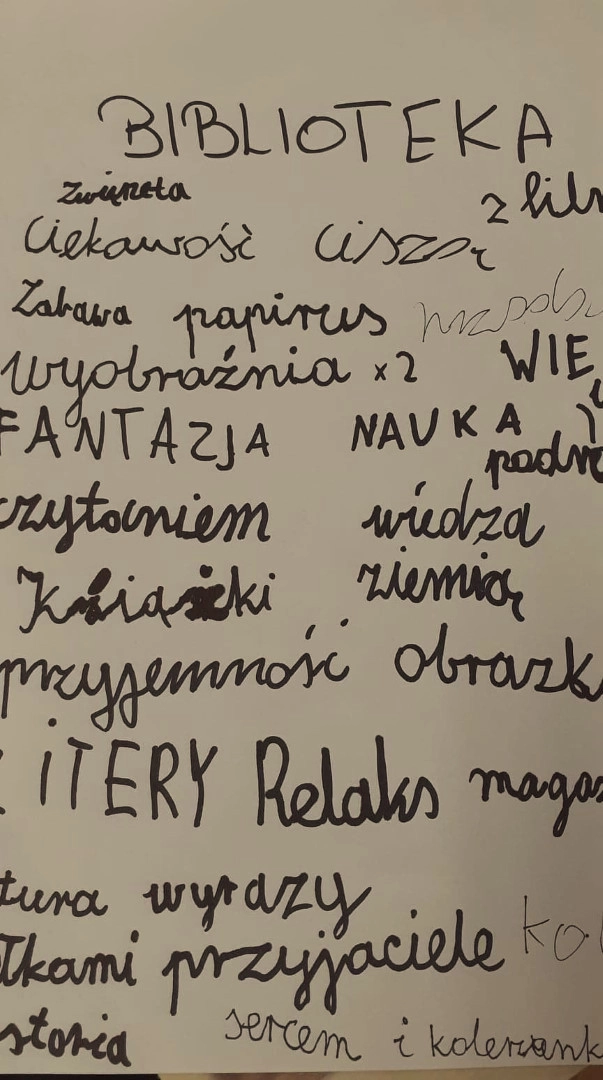 BIBLIOTEKA
zwięneta
z film
Ciekawość ciszą
Zabawa papirus
wyobraźnia x2 WIE
FANTAZJA NAUKA
podr
czytaniem wiedza
Książki ziemią
przyjemność obrazk
LITERY Relaks maga
tura wyrazy
łkami przyjaciele ko
storia sercem i koleżank